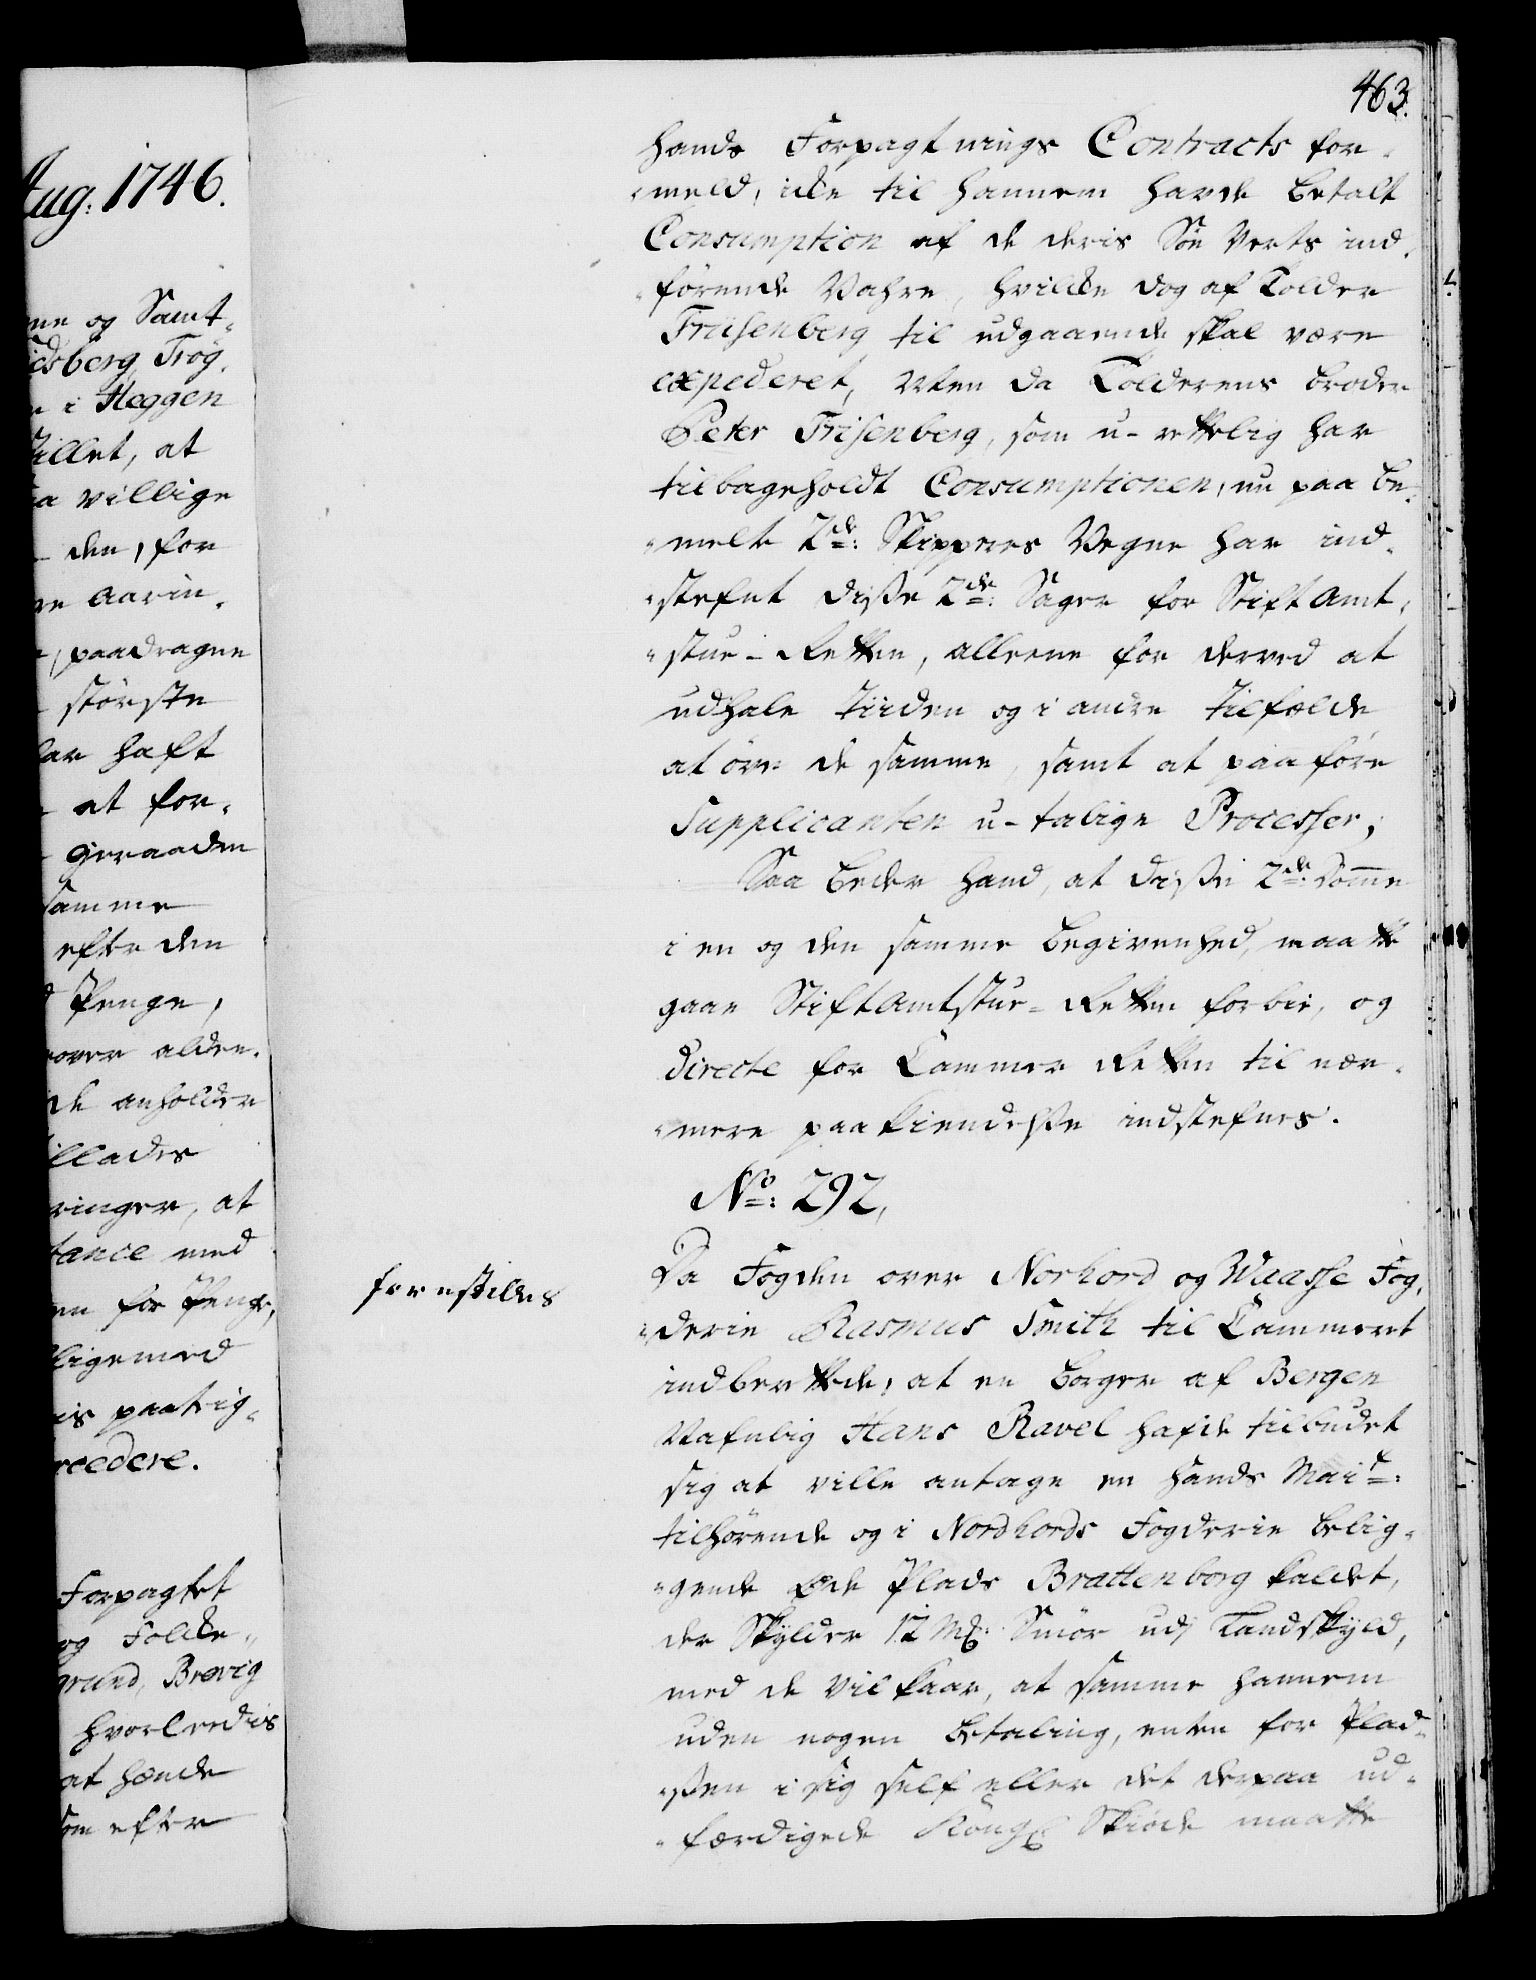 Aug: 1746.
ne og Samt-
idsberg, Trög,
i Heggen
illet, at
aa villige
den, for
re Aarin,
paadragne
största
har haft
at for,
geraaden
samme
efter den
Penge,
over alden,
de anholder
illades
ringer, at
tance med
en for Penge,
ligemed
is paatrig,
rcedere.
Forpagtet
og Folke-
grund, Brevig
hvorledis
at hænde
som efter
463.
hands Forpagtnings Contracts for-
meld, icke til hannem havde betalt
Consumption af de deris Söe Verts ind,
förende Vahre, hvilcke dog af Tolder
Friisenberg til udgaaende skal være
expederet, Men da Tolderens broder
Peter Frisenberg, som u-rettelig har
tilbageholdt Consumptionen, nu paa be,
melte 2de: Skippers Vegne har ind,
stefnt disse 2de: Sager for StiftAmt,
stue-Retten, alleene for derved at
udhale tiiden og i andre tilfælde
at öve de samme, samt at paaföre
Supplicanten u-talige Processer,
Saa beder hand, at disse 2de: Domme
i en og den samme begivenhed, maatte
gaae StiftAmtstue-Retten forbie, og
directe for Cammer Retten til nær-
mere paakiendelse indstefnes.
No: 292,
forestilles
Da Fogden over Norhord og Waasse Fog,
derie Rasmus Smith til Cammeret
indberettede, at en borger af Bergen
Nafnlig Hans Ravel hafde tilbudet
sig at ville antage en hands Maits:
tilhörende og i Nordhords Fogderie belig,
gende Öde Plads Brattenborg kaldet,
der Skylder 12 Mk: Smör udj Landskyld,
med de vilkaar, at samme hannem
uden nogen betaling, enten for Plad-
sen i sig self eller det derpaa ud-
færdigede Kongl: Skiöde maatte